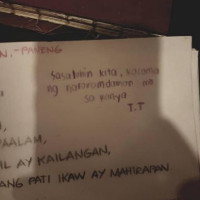 N. - PANENG
Sasalubin kita, kasama
ng nararamdaman mo
sa kanya
T.T
AALAM,
IL AY KAILANGAN,
ANG PATI IKAW AY MAHIRAPAN